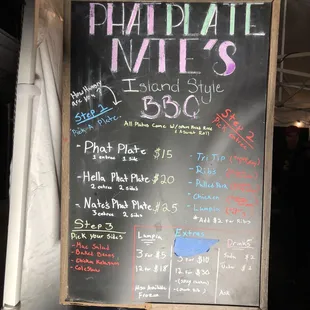 PHAT PLATE
NATE'S
Island Style
BBQ
How Hungry
are you?
All Plates Come W/
Step 1
Pick A Plate
Step 2
- Phat Plate $15
1 entree 1 side
- Hella Phat Plate $20
2 entree 2 sides
- Nate's Phat Plate $25
3 entree 2 sides
- Tri Tip
- Ribs
- Pulled Pork
- Chicken
- Lumpia
* Add $2 for Ribs
Step 3
Pick your Sides
- Mac Salad
- Baked Beans
- Chicken
- Coleslaw
Lumpia
3 for $5
12 for $18
Also Available
Frozen
Extras
for $10
12 for $30
Drinks
Soda $2
Water $2